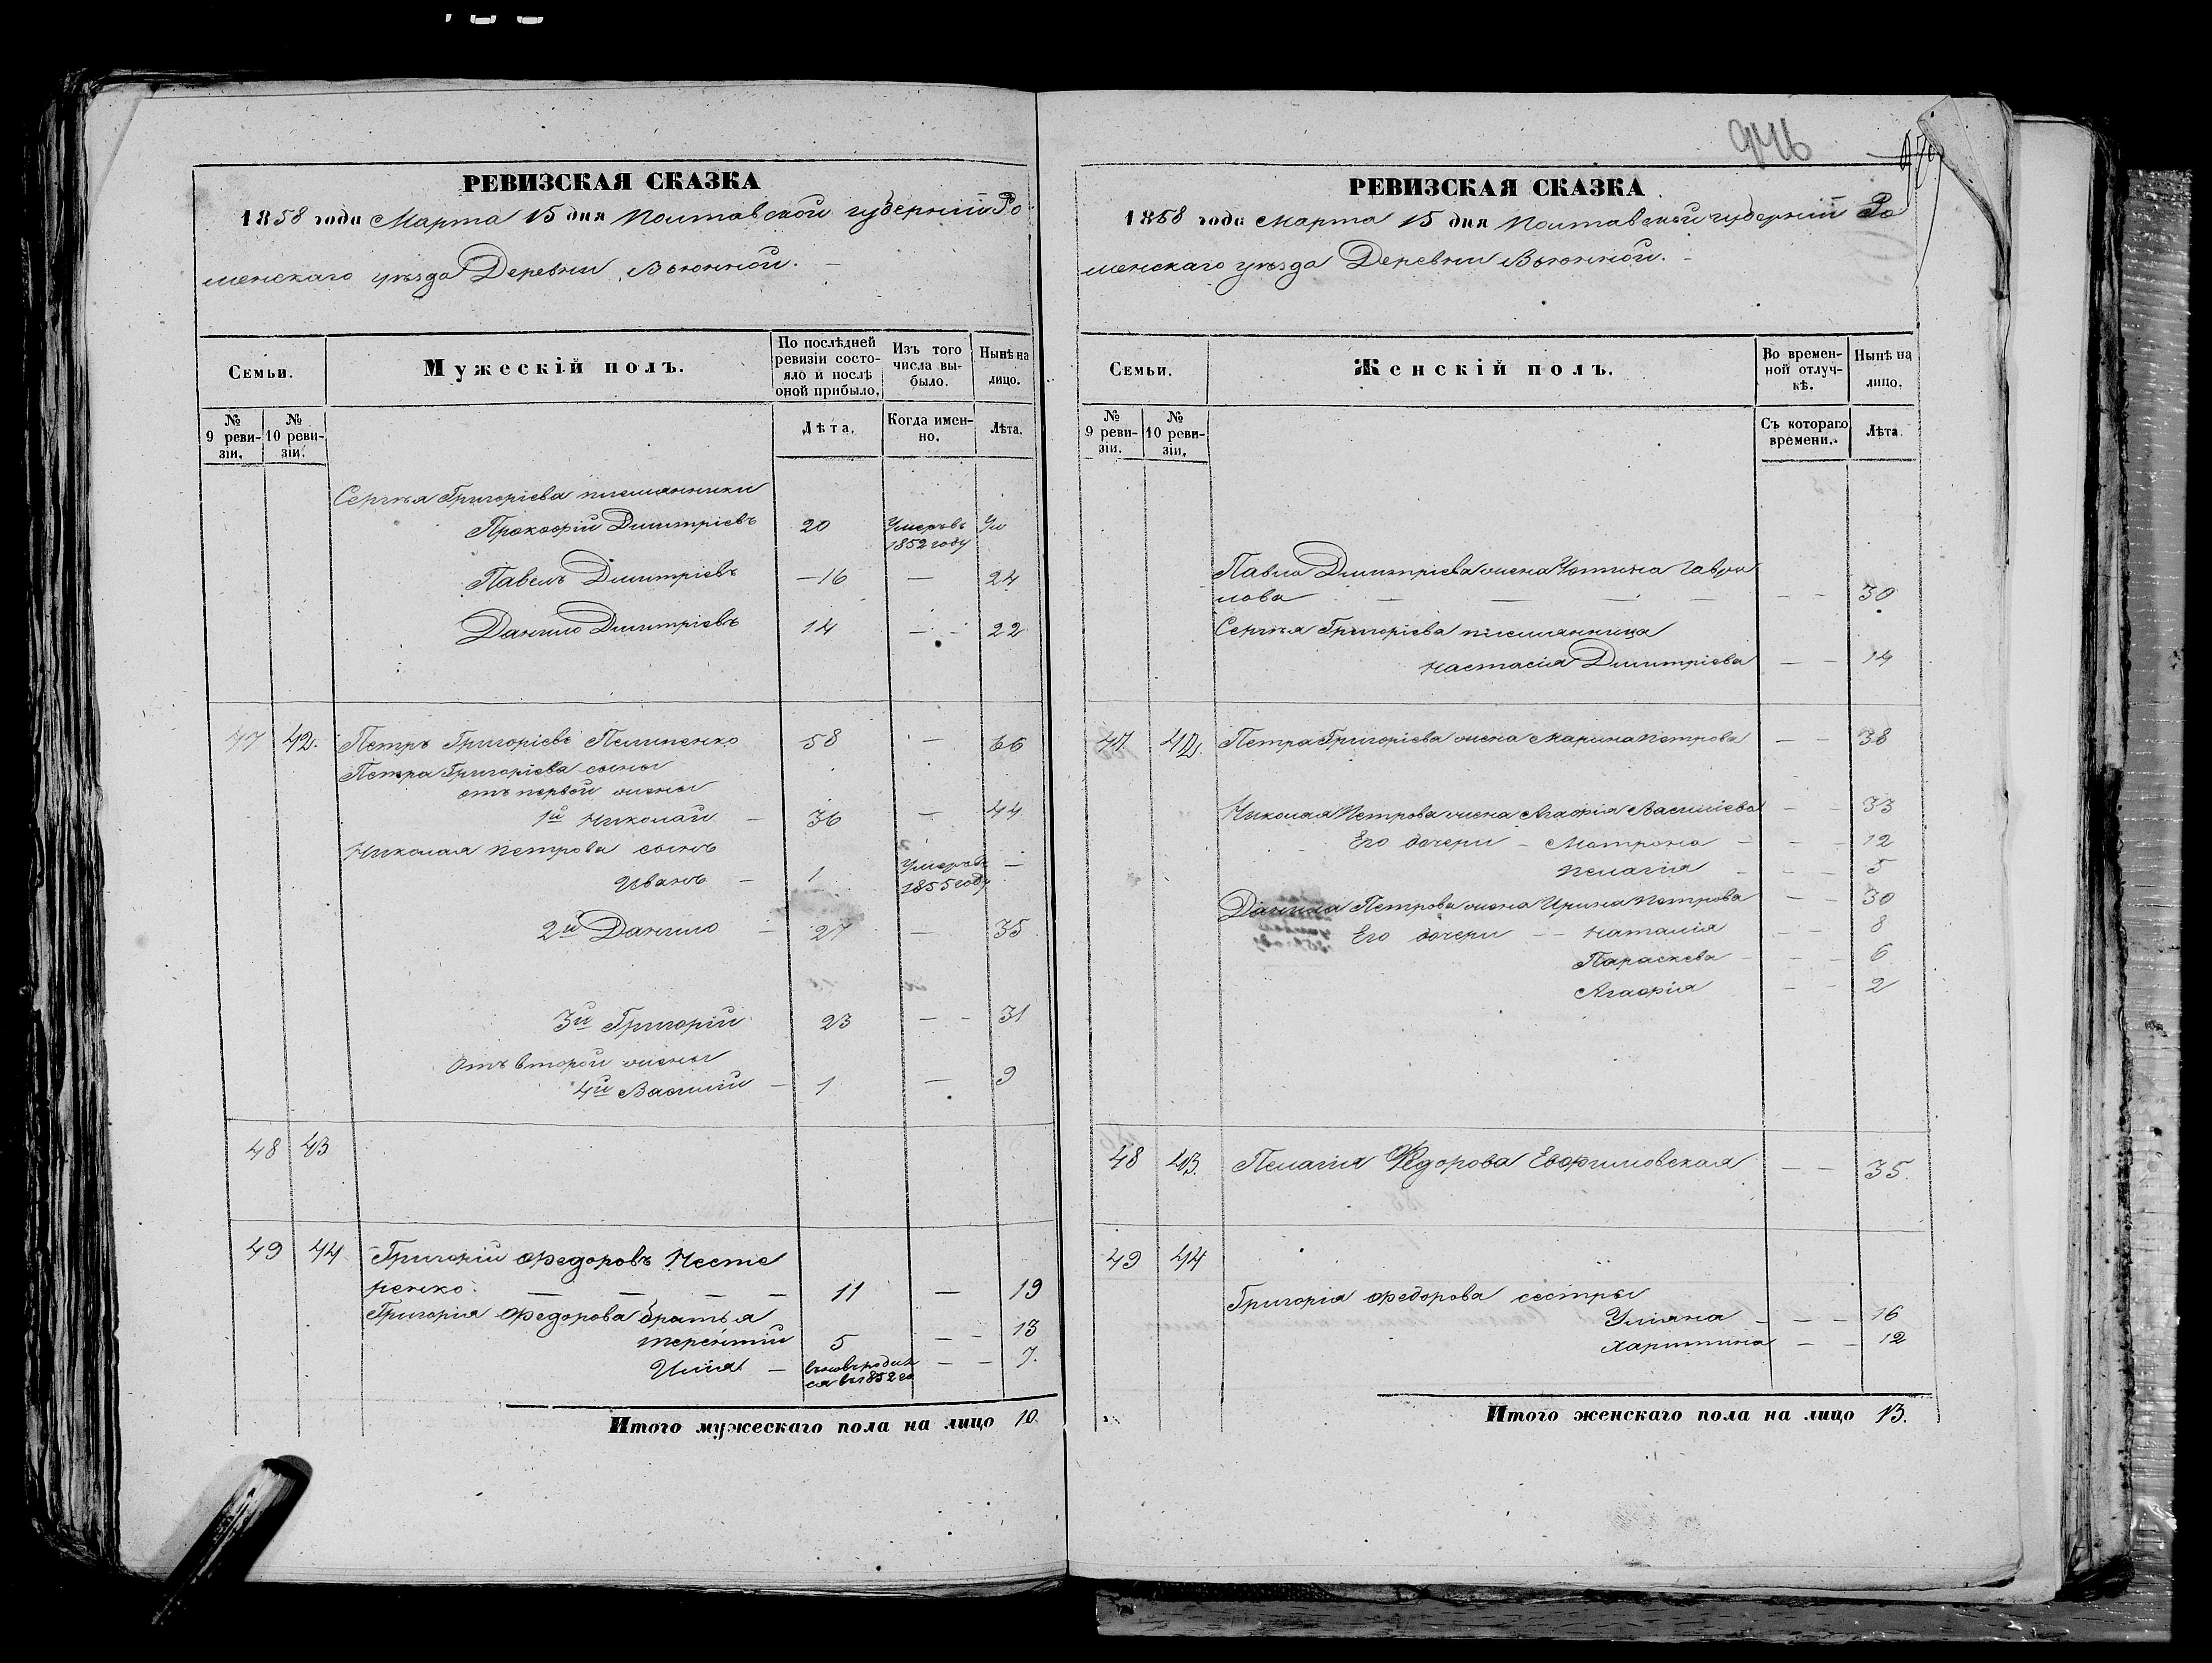 946
РЕВИЗСКАЯ СКАЗКА
1858 года Марта 15 дня Полтавской губерніи Ро
менскаго уѣзда Деревни Вьюнной.
Семьи.
Мужескій полъ.
По послѣдней ревизіи состо-
яло и послѣ оной прибыло.
Изъ того числа вы-
было.
Нынѣ на лицо.
№ 9 реви-
зіи.
№ 10 реви-
зіи.
Лѣта.
Когда имен-
но.
Лѣта.
Сергѣя Григоріева племянники
Прокофій Димитріевъ 20 Умеръ въ Ум
1852 году
Павелъ Димитріевъ — 16 — 24
Данило Димитріевъ 14 — - 22
47 42. Петръ Григоріевъ Пилипенко 58 — 66
Петра Григоріева сыны
отъ первой жены
1й Николай — 36 — 44
Николая Петрова сынъ
Иванъ — 1 Умеръ въ —
1855 году
2й Данило — 27 — 35
3й Григорій 23 — - 31
Отъ второй жены
4й Василій — 1 — 9
48 43
49 44 Григорій Федоровъ Несте
ренко. — — — — 11 — 19
Григорія Федорова братья
Терентій 5 — - 13
Илія — вновь родил — - 7.
ся въ 1852 го
Итого мужескаго пола на лицо 10
РЕВИЗСКАЯ СКАЗКА
1858 года Марта 15 дня Полтавской губерніи Ро
менскаго уѣзда Деревни Вьюнной.
Семьи.
Женскій полъ.
Во времен-
ной отлуч-
кѣ.
Нынѣ на лицо.
№ 9 реви-
зіи.
№ 10 реви-
зіи.
Съ котораго времени.
Лѣта
Павла Димитріева жена Устина Гаври
лова — — — — - - 30
Сергѣя Григоріева племянница
Настасія Димитріева — - 14
47. 42. Петра Григоріева жена Марина Петрова — - 38
Николая Петрова жена Агафія Василіева — - 33
Его дочери — Матрона — - - 12
Пелагія - - - 5
Данила Петрова жена Ирина Петрова — - 30
Его дочери — - Наталія - - 8
Параскева - - - 6
Агафія - - 2
48 43. Пелагія Федорова Евфимовская — - 35.
49 44
Григорія Федорова сестры
Уліяна - - - 16
Харитина — - 12
Итого женскаго пола на лицо 13.